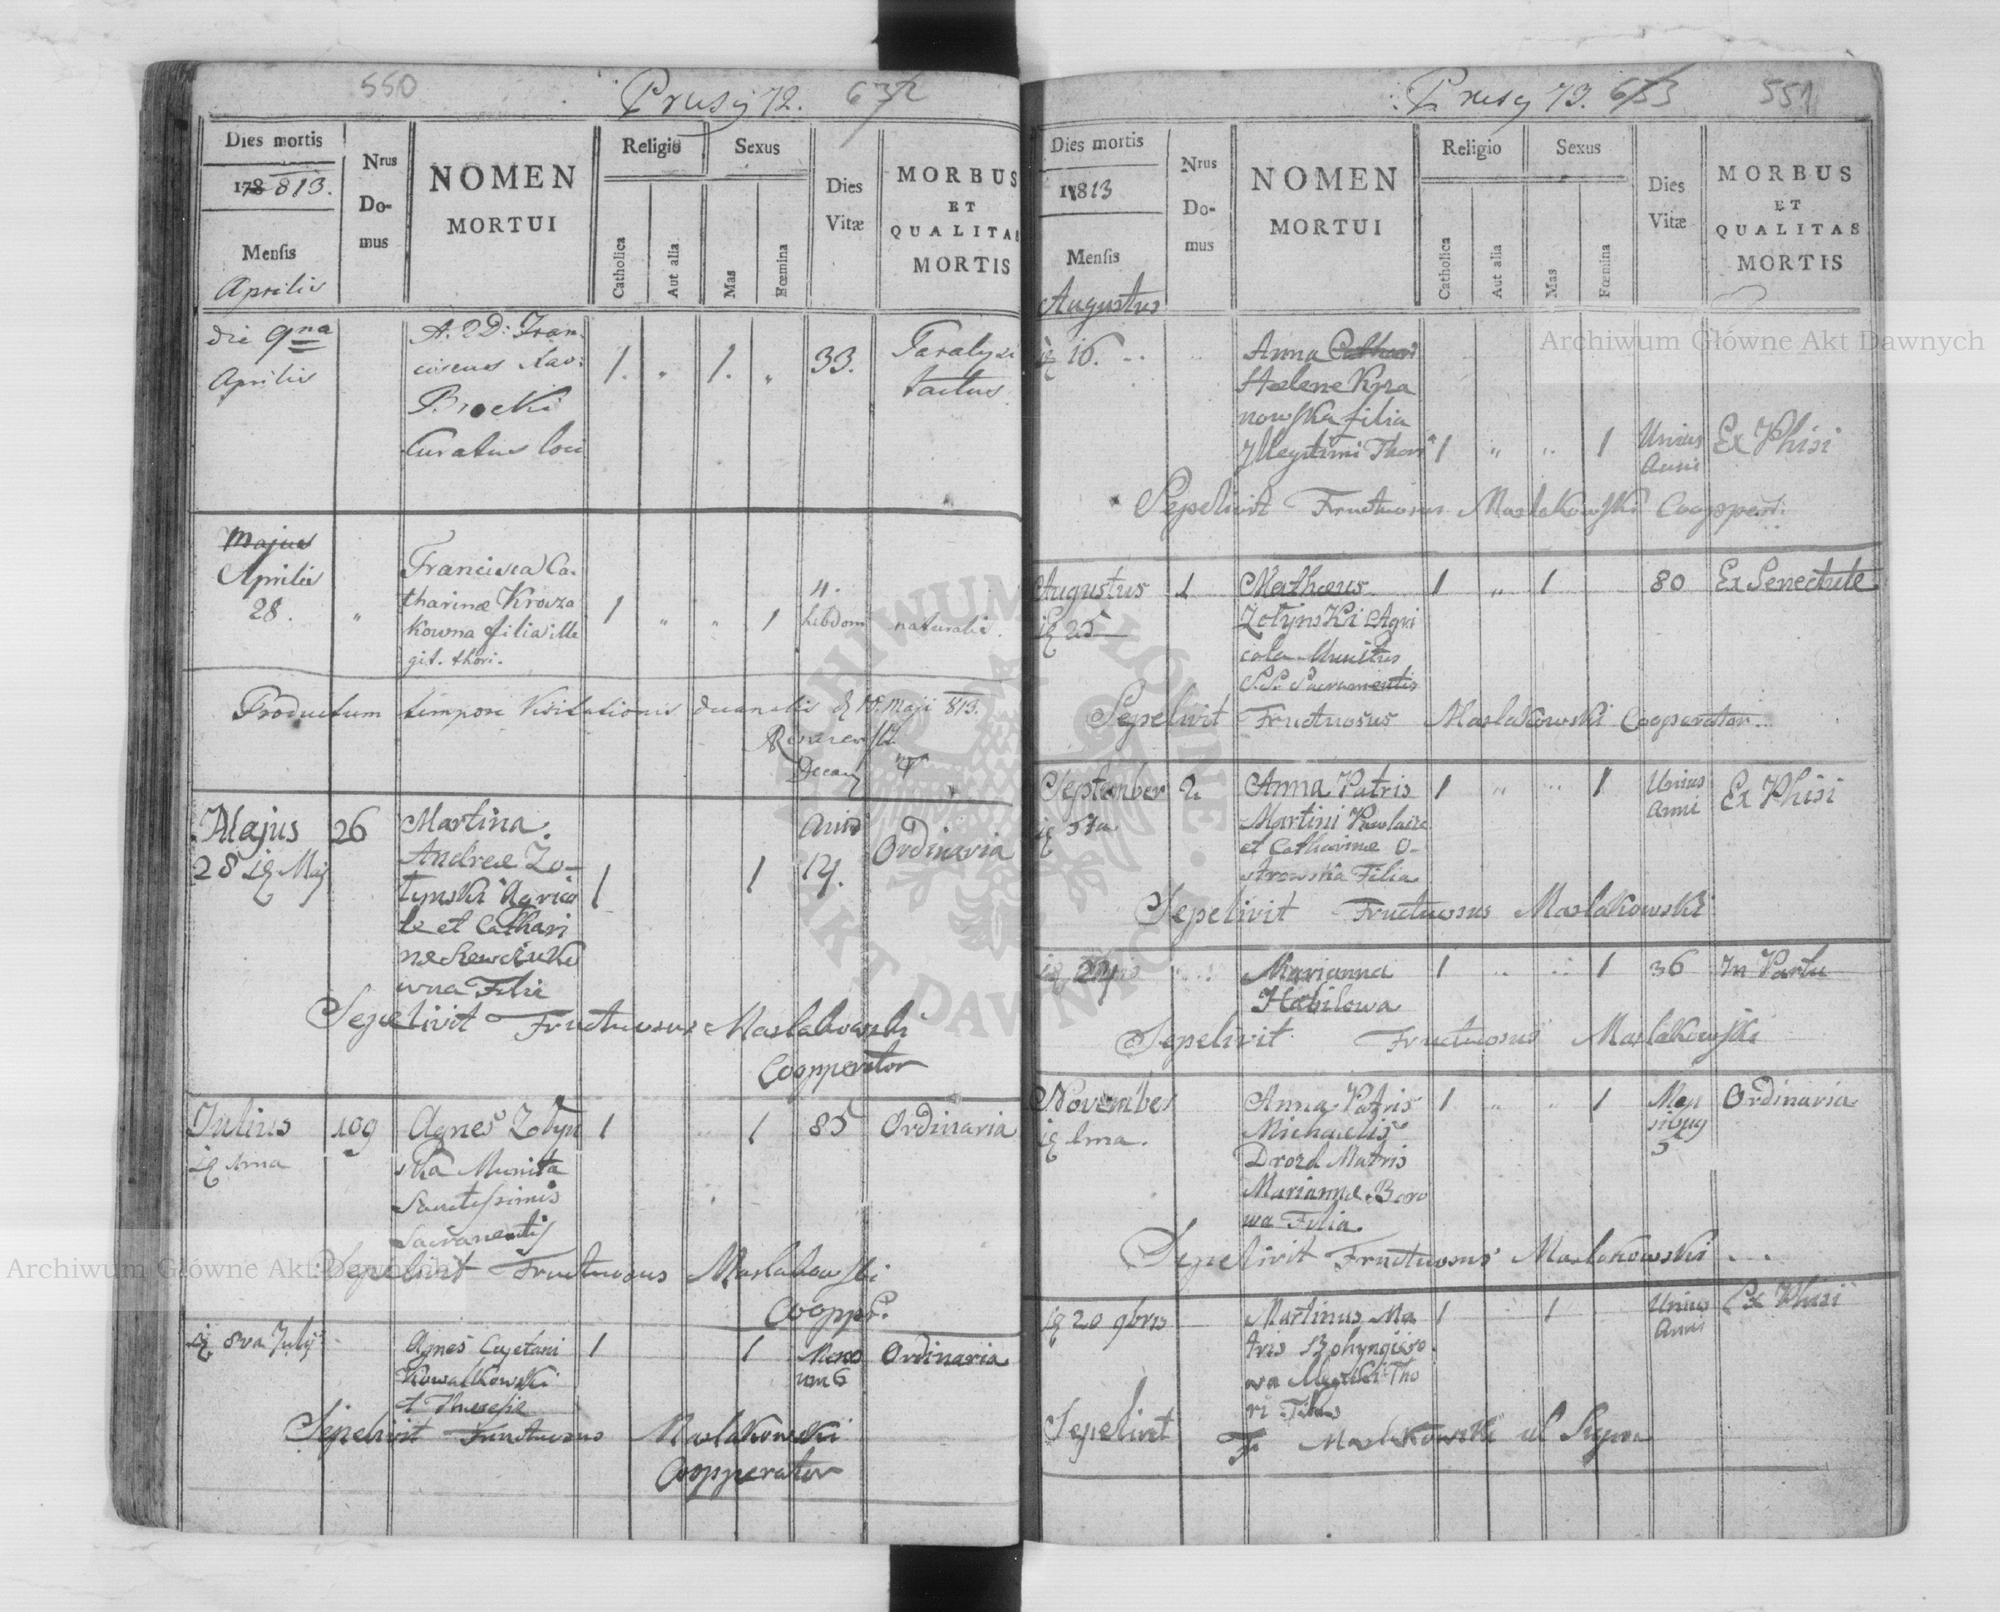 550
Prusy 72.
Dies mortis
178 813.
Mensis
Aprilis
Nrus
Do-
mus
NOMEN
MORTUI
Religio
Catholica
Aut alia
Sexus
Mas
Fœmina
Dies
Vitæ
MORBUS
ET
QUALITAS
MORTIS
die 9na
Aprilis
A. R D: Fran-
ciscus Xav:
Brocki
Curatus loci
1. " 1. "
33.
Paralysi
tactus
Majus
Aprilis
28.
"
Francisca Ca-
tharinæ
kowna filia ille
git. thori.
1 " " 1
4.
hebdom
naturalis.
Productum tempore Visitationis decanalis Maji 813.
Majus
28
26
Martina
Andreæ Zo-
tynski Agrico
læ et Cathari
næ
wna Filia
1 1
14.
Ordinaria
Sepelivit Fructuosus Maslakowski
Coopperator
Julius
109
Agnes Zotyn
ska Munita
Sanctissimis
Sacramentis
1 1
85
Ordinaria
Sepelivit Fructuosus Maslakowski
Cooppr.
8va July
Agnes Cajetani
Kowalkowski
et Theresiæ
1 1
Mens
um 6
Ordinaria
Sepelivit Fructuosus Maslakowski
Coopperator
Prusy 73.
551
Dies mortis
1813
Mensis
Augustus
Nrus
Do-
mus
NOMEN
MORTUI
Religio
Catholica
Aut alia
Sexus
Mas
Fœmina
Dies
Vitæ
MORBUS
ET
QUALITAS
MORTIS
16.
Anna
Helene Krza
nowska filia
Illegitimi Thori
1 " " 1
Unius
Anni
Ex Phisi
Sepelivit Fructuosus Maslakowski Coopper.
Augustus
25
1
Mathæus
Zotynski Agri
cola Munitus
S.S. Sacramentis
1 " 1
80
Ex Senectute
Sepelivit Fructuosus Maslakowski Cooperator
September
5ta
2
Anna Patris
Martini
et Catharinæ O-
strowska Filia
1 " " 1
Unius
Anni
Ex Phisi
Sepelivit Fructuosus Maslakowski
Marianna
Habilowa
1 " " 1
36
In Partu
Sepelivit Fructuosus Maslakowski
November
1ma.
Anna Patris
Michaelis
Drozd Matris
Mariannæ Boro
wa Filia
1 " " 1
5
Ordinaria
Sepelivit Fructuosus Maslakowski
20 9bris
Martinus Ma
tris
1 1
Unius
Anni
Ex Phisi
Sepelivit
Fr Maslakowski ut Supra
Archiwum Główne Akt Dawnych
Archiwum Główne Akt Dawnych
ARCHIWUM GŁÓWNE · AKT DAWNYCH ·